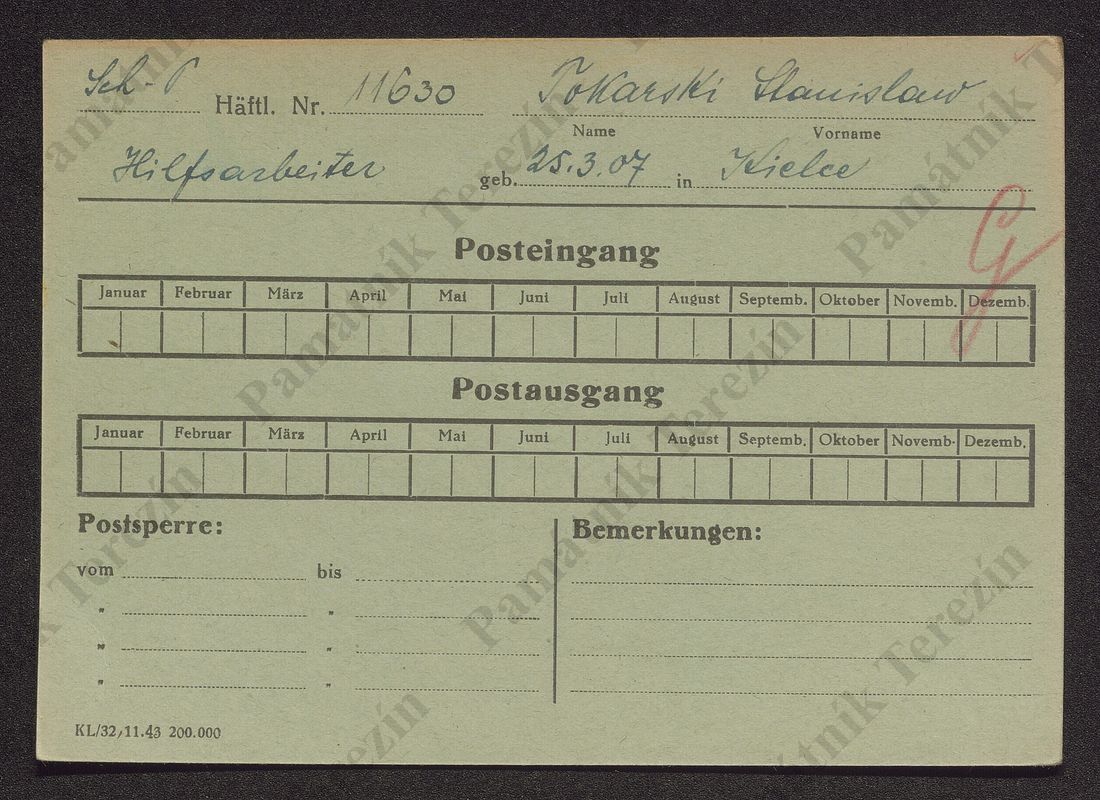 Sch-P Häftl. Nr. 11630 Tokarski Stanislaw
Name Vorname
Hilfsarbeiter geb. 25.3.07 in Kielce
Posteingang
Januar Februar März April Mai Juni Juli August Septemb. Oktober Novemb. Dezemb.
Postausgang
Januar Februar März April Mai Juni Juli August Septemb. Oktober Novemb. Dezemb.
Postsperre: Bemerkungen:
vom bis
" "
" "
" "
KL/32/11.43 200.000
Památník Terezín